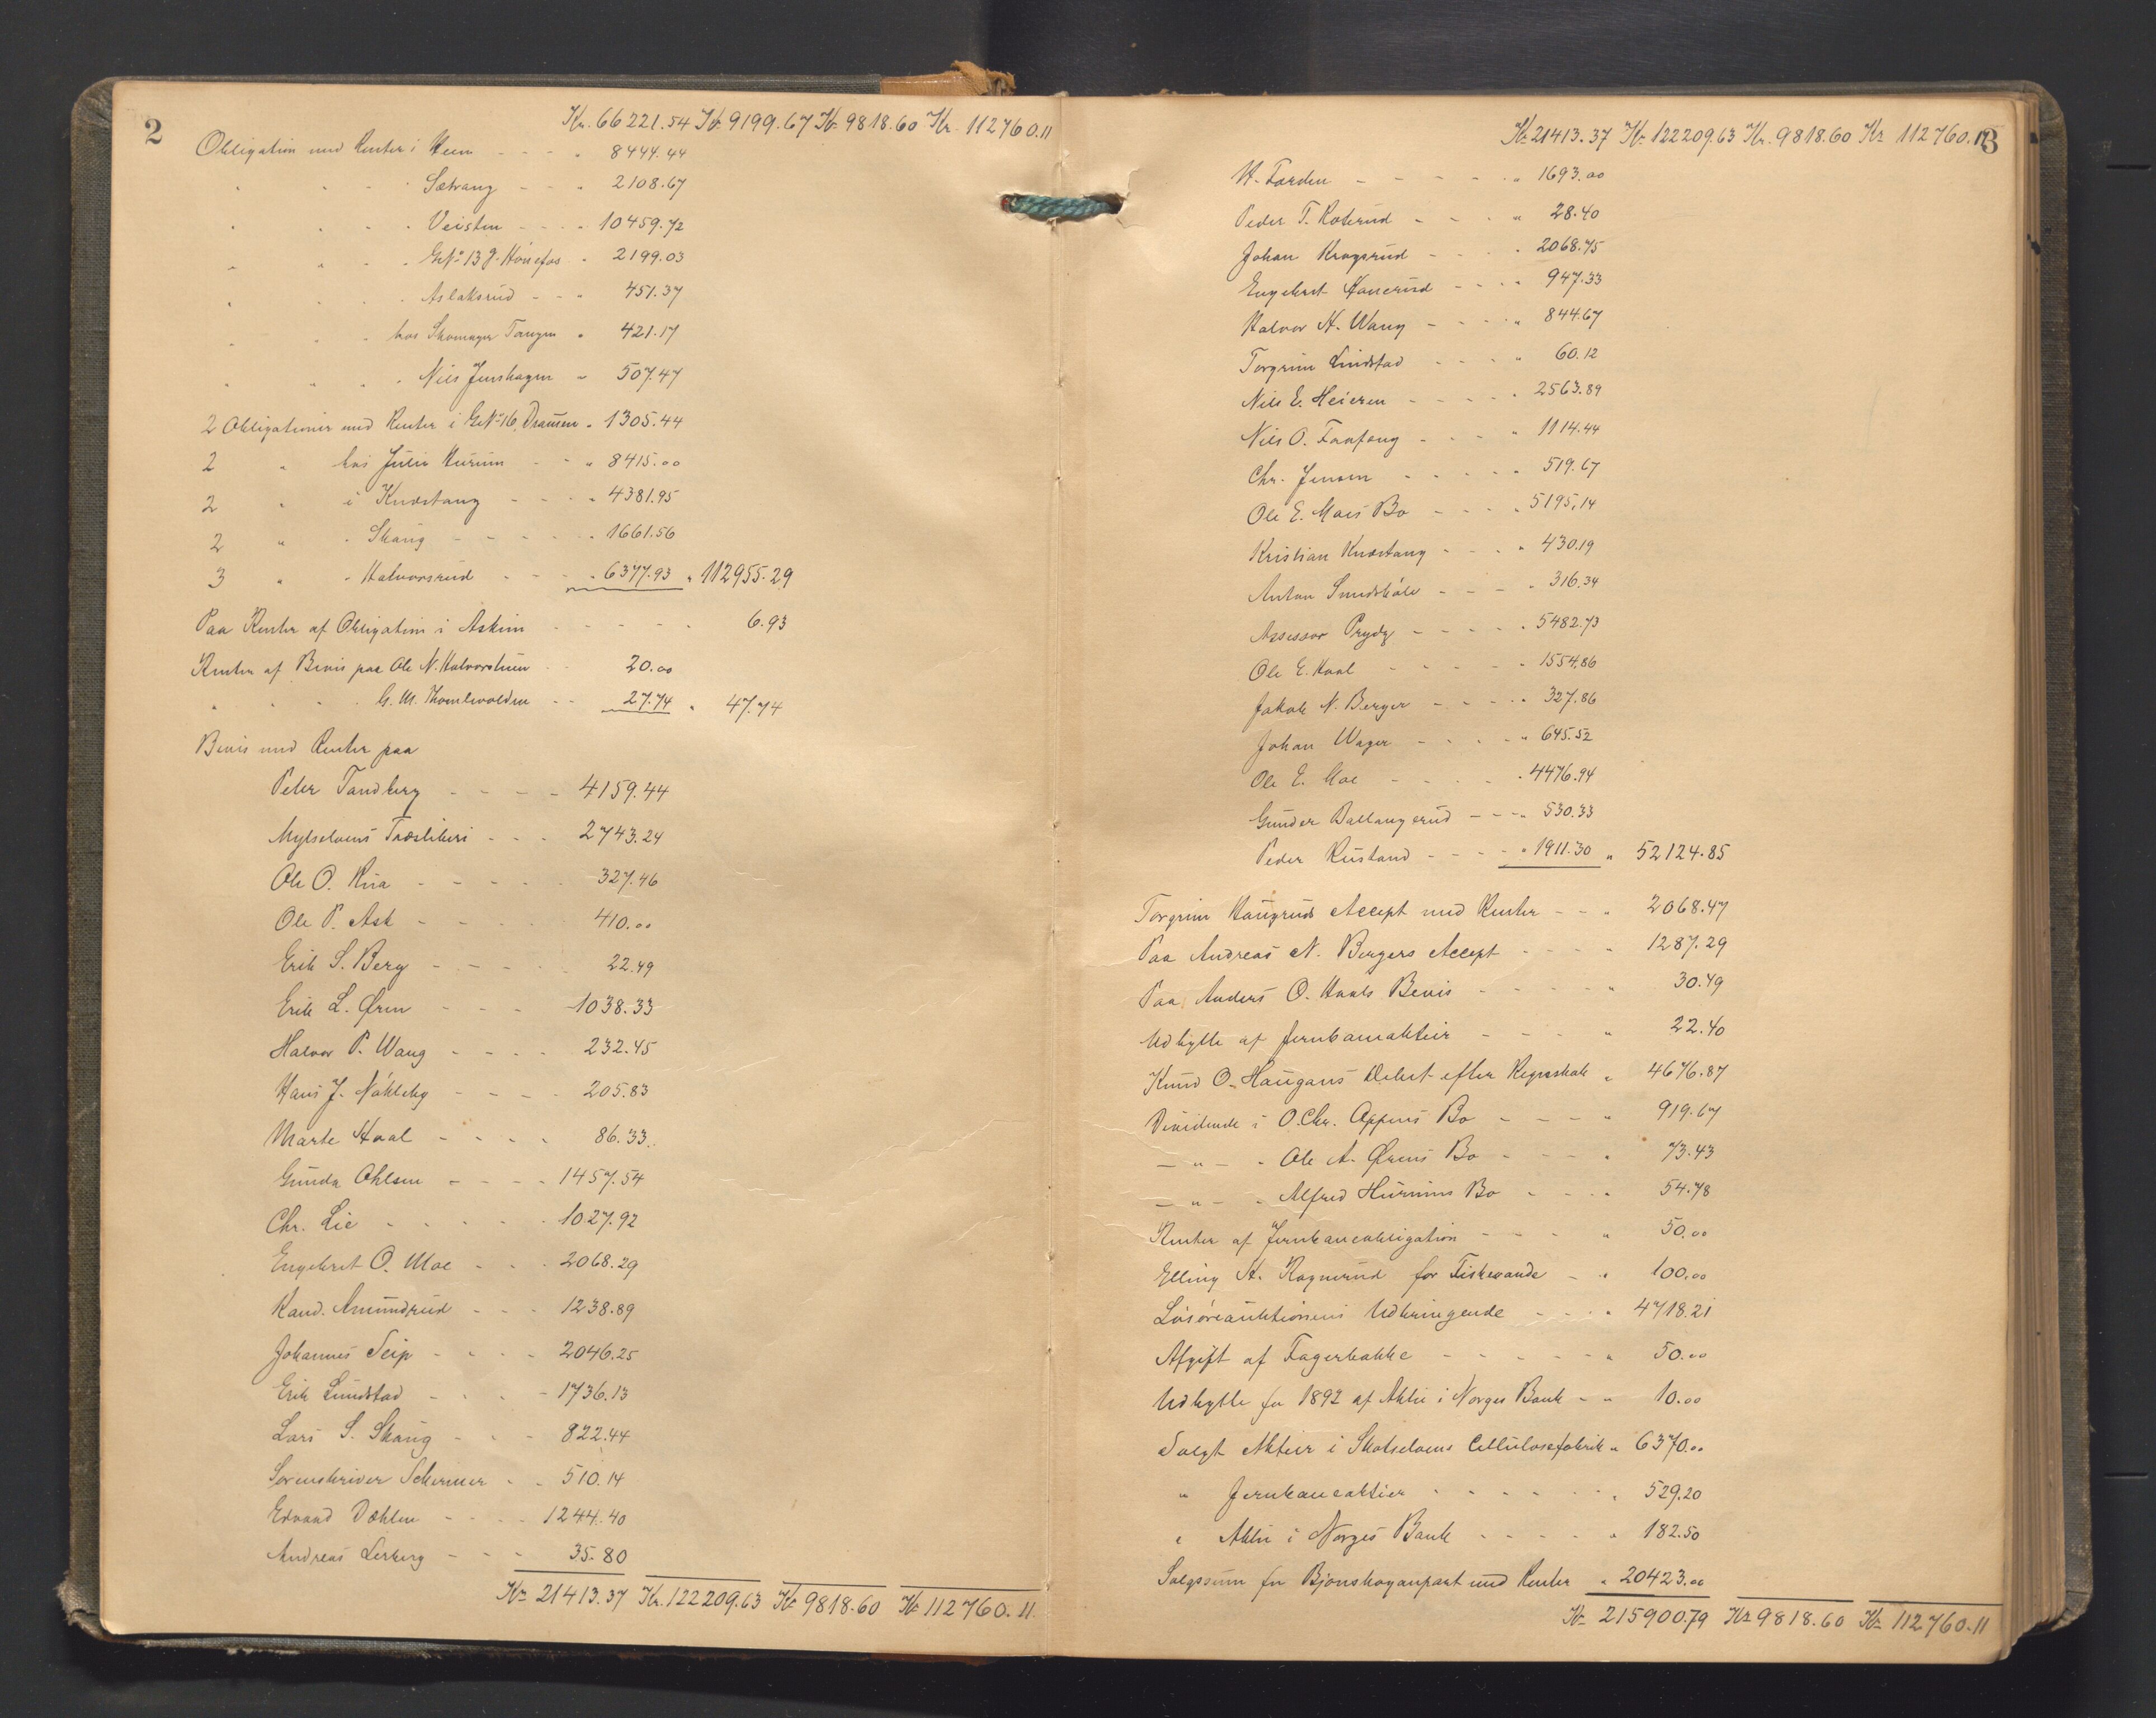 2
Kr. 66221.54 Kr. 9199.67 Kr. 9818.60 Kr. 112760.11
Obligation med Renter i Heen - - - " 8444.44
" " - " Sætrang - - " 2108.67
" " " " Veisten - - - " 10459.72
" " - " GNo 13 J. Hönefos " 2199.03
" " " " Aslaksrud - - " 451.37
" " " hos Skomager Tangen " 421.17
" " " " Nils Jenshagen " 507.47
2 Obligationer med Renter i GNo 16, Dramen " 1305.44
2 " hos Julie Hurum - - " 8415.00
2 " i Knestang - - - " 4381.95
2 " " Skaug - - - - " 1661.56
3 " " Halvorsrud - - - " 6377.93 " 112955.29
Paa Renter af Obligation i Askim - - - - " 6.93
Renter af Bevis paa Ole N. Halvorstuen - - 20.00
" " " " G. M. - - 27.74 " 47.74
Bevis med Renter paa
Peter Tandberg - - - - 4159.44
Træsliberi - - - 2743.24
Ole O. Rua - - - - - 327.46
Ole P. Ask - - - - 410.00
Erik S. Berg - - - - 22.49
Erik L. Øren - - - 1038.33
Halvor P. Wang - - - - 232.45
Hans J. Nökleby - - - - 205.83
Marte Hval - - - - 86.33
Gunda Ohlsen - - - - 1457.54
Chr. Lie - - - - - 1027.92
Engebret O. Moe - - - 2068.29
Kand. Amundrud - - - 1238.89
Johannes Seip - - - - 2046.25
Erik Lundstad - - - - 1736.13
Lars S. Skaug - - - 822.44
Sorenskriver Scheimer - - 510.14
Edvard Dæhlen - - - - 1244.40
Andreas Lerberg - - - 35.80
Kr. 21413.37 Kr. 122209.63 Kr. 9818.60 Kr. 112760.11
Kr. 21413.37 Kr. 122209.63 Kr. 9818.60 Kr. 112760.11
3
H. Farden - - - - - " 1693.00
Peder T. Roterud - - - " 28.40
Johan Krogsrud - - - " 2068.75
Engebret Hanerud - - - " 947.33
Halvor H. Wang - - - " 844.67
Torgrim Lindstad - - - " 60.12
Nils E. Heieren - - - - " 2563.89
Nils O. - - - " 1114.44
Chr. Jensen - - - - " 519.67
Ole E. Moes Bo - - - " 5195.14
Kristian Knestang - - - " 430.19
Anton Smedsböle - - - " 316.34
Assessor Prydz - - - - " 5482.73
Ole E. Hval - - - - " 1554.86
Jakob N. Berger - - - - " 327.86
Johan Wager - - - - " 645.52
Ole E. Moe - - - - " 4476.94
Gunder Ballangerud - - - " 530.33
Peder Rustand - - - - " 1911.30 " 52124.85
Torgrim Haugruds Accept med Renter - - " 2068.47
Paa Andreas N. Bergers Accept - - - " 1287.29
Paa Anders O. Hvals Bevis - - - - " 30.49
Udbytte af Jernbaneaktier - - - " 22.40
Knud O. Haugans Debet efter Regnskab " 4676.87
Dividende i O. Chr. Appens Bo - - - " 919.67
- " - " Ole A. Ørens Bo - - - " 73.43
- " - " Alfred Hurums Bo - - - " 54.78
Renter af Jernbaneobligation - - - " 50.00
Elling A. Ragnerud for Fiskevande - " 100.00
Lösöreauktionens Udbringende - - - " 4718.21
Afgift af Fagerbakke - - - - - " 50.00
Udbytte for 1892 af Aktie i Norges Bank - " 10.00
Solgt Aktier i Skotselvens Cellulosefabrik " 6370.00
" Jernbaneaktier - - - - - " 529.20
" Aktie i Norges Bank - - - - " 182.50
Salgssum for Bjonskogenpart med Renter " 20423.00
Kr. 215900.79 Kr. 9818.60 Kr. 112760.11